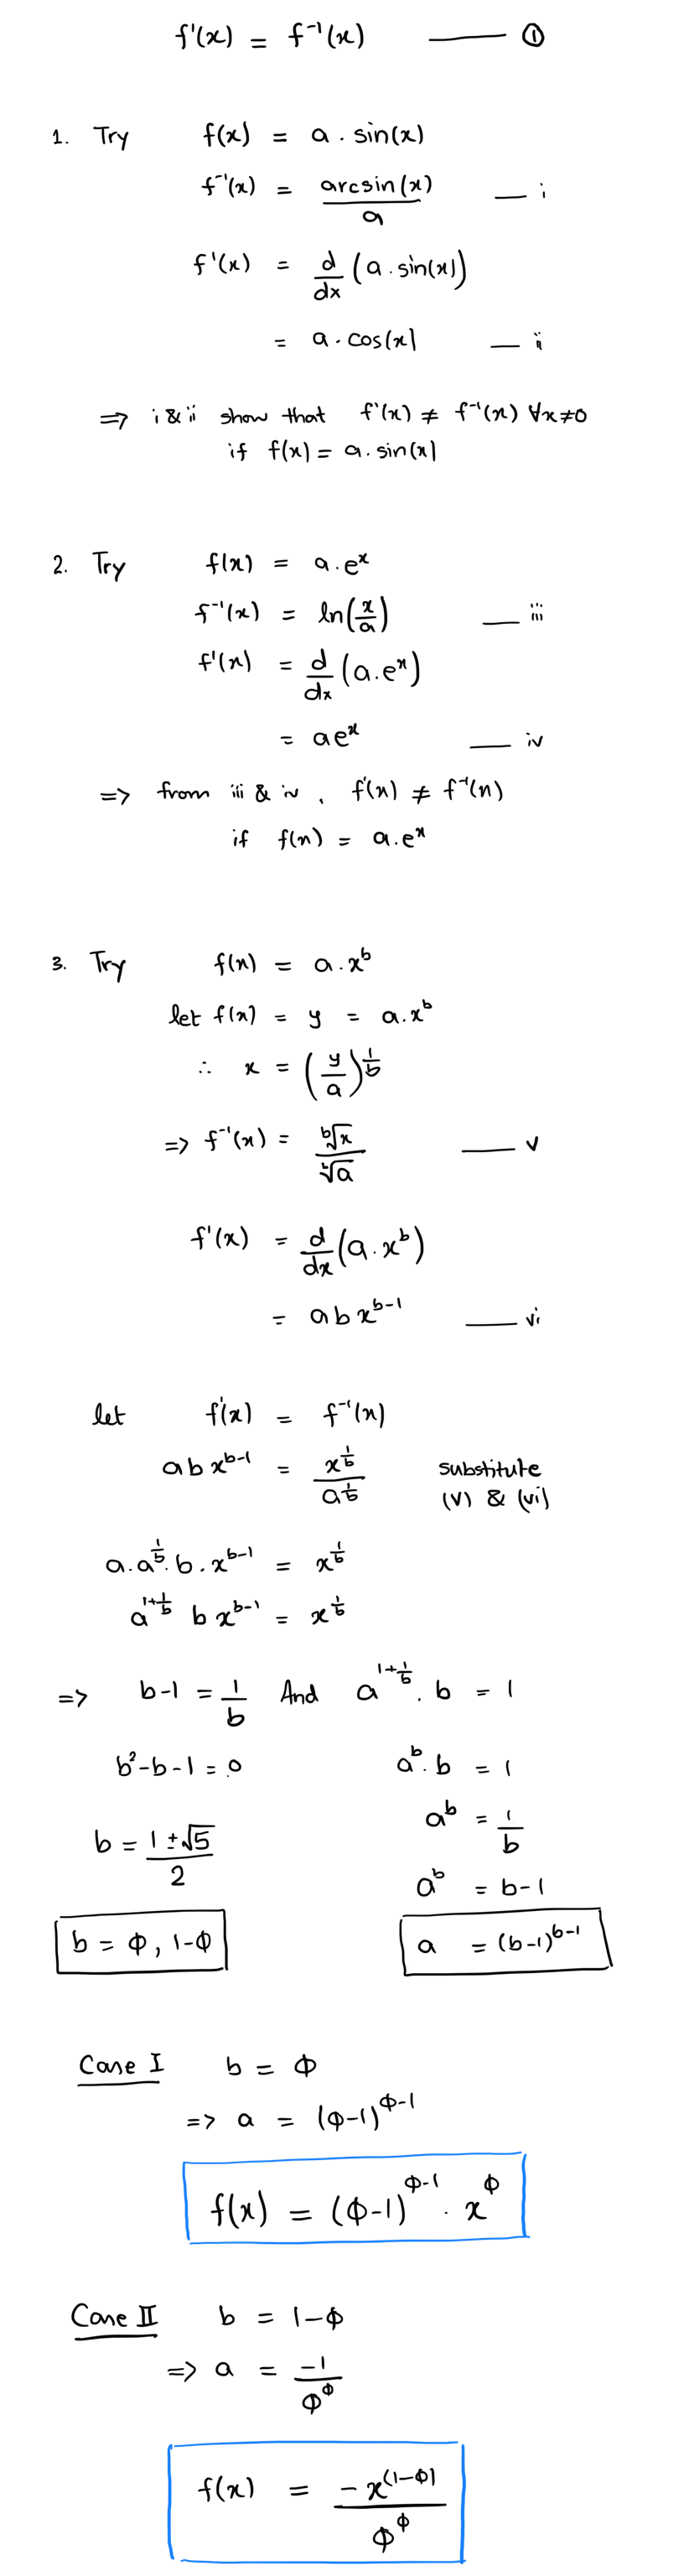 f'(x) = f⁻¹(x) —— ①
1. Try f(x) = a . sin(x)
f⁻¹(x) = arcsin(x)/a — i
f'(x) = d/dx (a . sin(x))
= a . cos(x) — ii
⇒ i & ii show that f'(x) ≠ f⁻¹(x) ∀x≠0
if f(x) = a . sin(x)
2. Try f(x) = a . eˣ
f⁻¹(x) = ln(x/a) — iii
f'(x) = d/dx (a . eˣ)
= aeˣ — iv
⇒ from iii & iv , f'(x) ≠ f⁻¹(x)
if f(x) = a . eˣ
3. Try f(x) = a . x^b
let f(x) = y = a . x^b
∴ x = (y/a)^(1/b)
⇒ f⁻¹(x) = ᵇ√x / ᵇ√a — v
f'(x) = d/dx (a . x^b)
= a b x^(b-1) — vi
let f'(x) = f⁻¹(x)
a b x^(b-1) = x^(1/b) / a^(1/b) substitute
(v) & (vi)
a . a^(1/b) . b . x^(b-1) = x^(1/b)
a^(1+1/b) b x^(b-1) = x^(1/b)
⇒ b-1 = 1/b And a^(1+1/b) . b = 1
b²-b-1 = 0 a^b . b = 1
b = (1±√5)/2 a^b = 1/b
a^b = b-1
b = Φ, 1-Φ a = (b-1)^(b-1)
Case I b = Φ
⇒ a = (Φ-1)^(Φ-1)
f(x) = (Φ-1)^(Φ-1) . x^Φ
Case II b = 1-Φ
⇒ a = -1/Φ^Φ
f(x) = -x^(1-Φ) / Φ^Φ